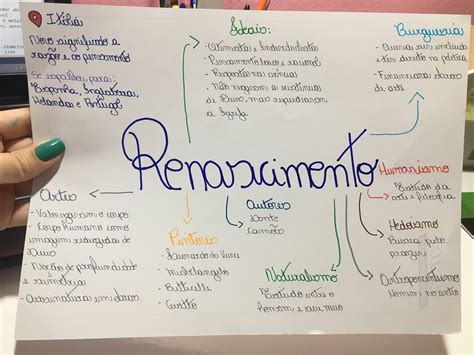 Itália
Novo significado a
razão e ao pensamento
Se espalhou para:
Espanha, Inglaterra,
Holanda e Portugal
Ideais:
- Otimistas e Individualistas
- Pensamento laico e racional
- Respostas na ciência
- Não negavam a existência
de Deus, mas repudiavam
a Igreja
Burguesia
- Queria ser incluída e
ter direito na política
- Financiavam obras
de arte
Renascimento
Artes
- Valorizavam o corpo
- Corpo Humano como
imagem reduzida de
Deus
- Noção de profundidade
e simetria
- Assinatura em obras
Pintores
- Leonardo da Vinci
- Michelangelo
- Botticelli
- Giotto
Autores
- Dante
- Camões
Naturalismo
- Estudo entre o
homem e seu meio
Humanismo
- Estudo da
arte e filosofia
Hedonismo
- Busca pelo
prazer
Antropocentrismo
- Homem no centro